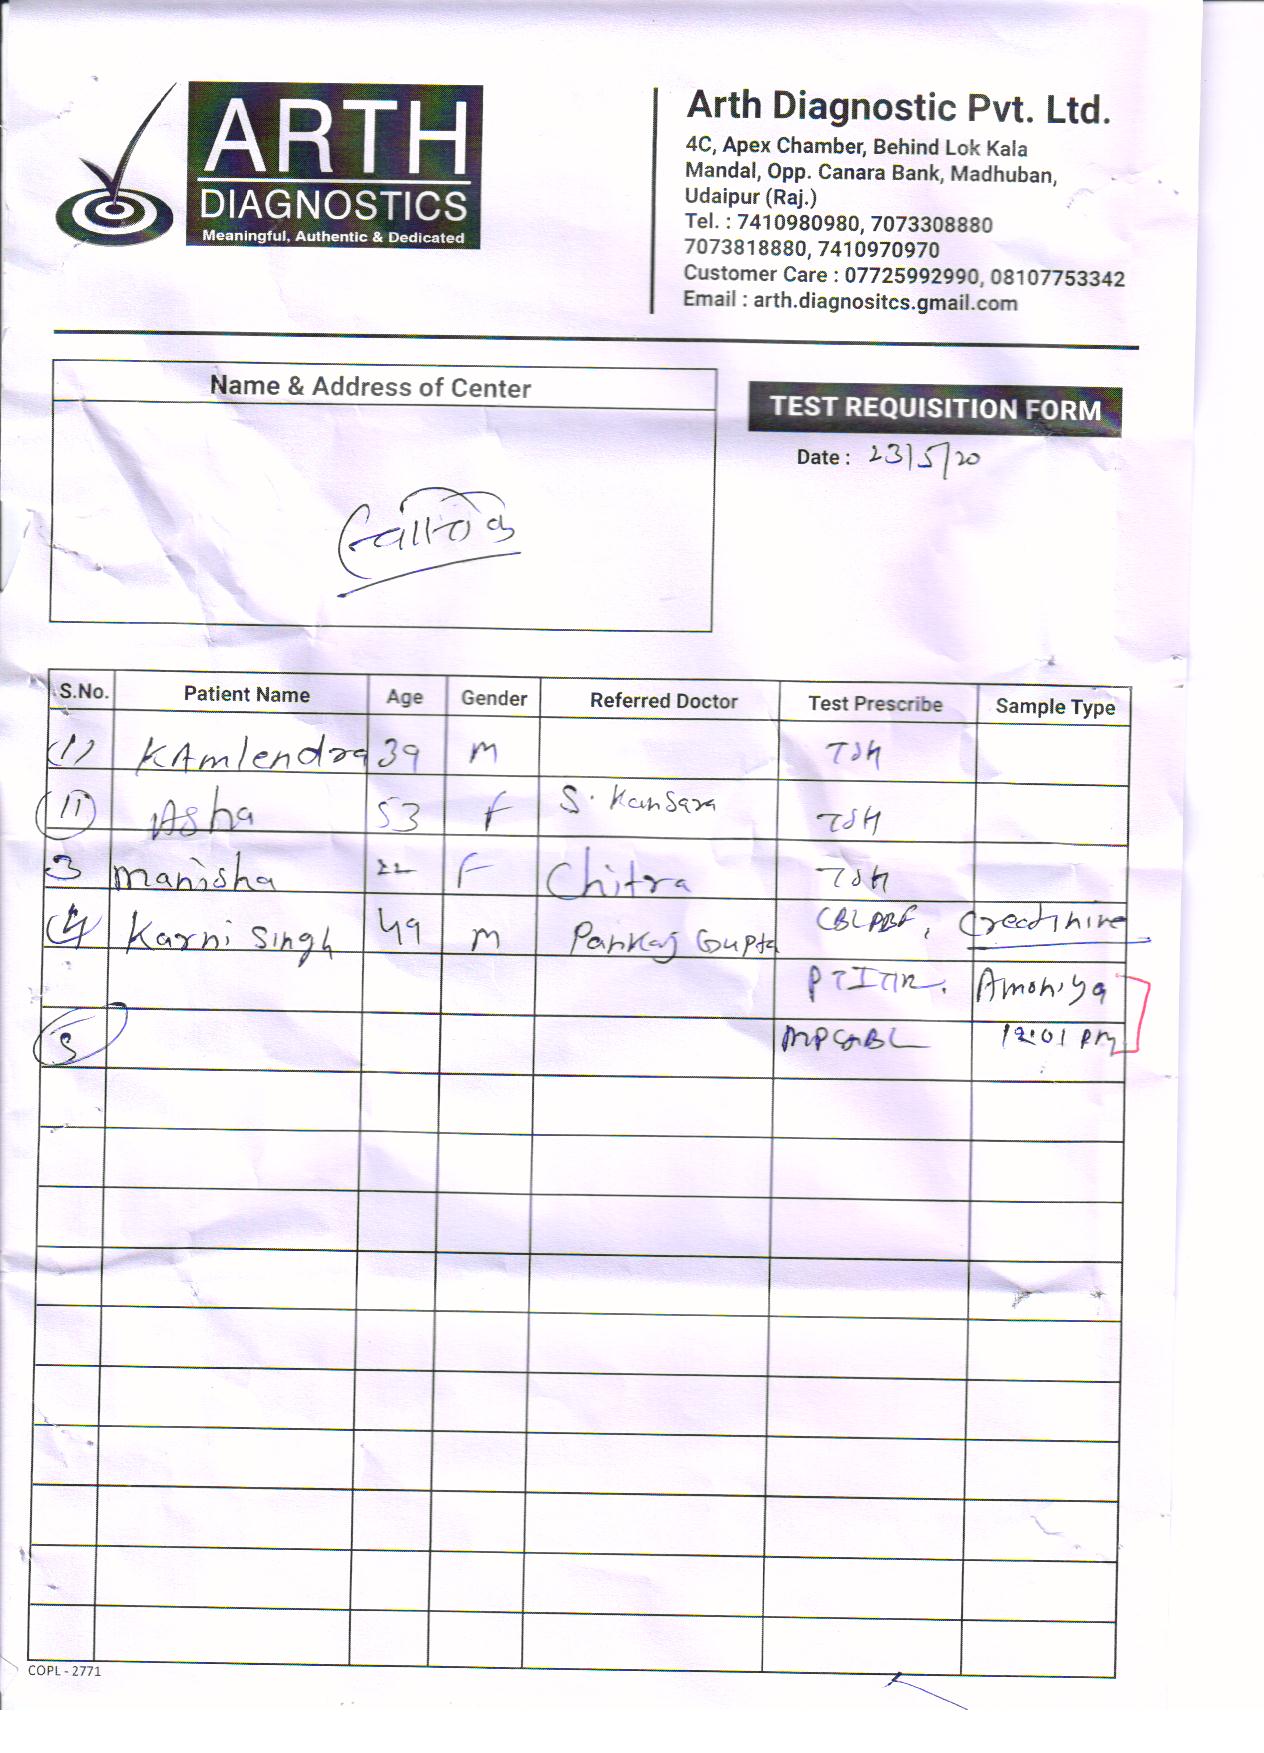 ARTH
DIAGNOSTICS
Meaningful, Authentic & Dedicated
Arth Diagnostic Pvt. Ltd.
4C, Apex Chamber, Behind Lok Kala
Mandal, Opp. Canara Bank, Madhuban,
Udaipur (Raj.)
Tel. : 7410980980, 7073308880
7073818880, 7410970970
Customer Care : 07725992990, 08107753342
Email : arth.diagnositcs.gmail.com
Name & Address of Center
TEST REQUISITION FORM
Date : 23/5/20
S.No. Patient Name Age Gender Referred Doctor Test Prescribe Sample Type
(1) KAmlendra 39 M TSH
(11) Asha 53 F S. Kansara TSH
3 Manisha 22 F Chitra TSH
(4) Karni Singh 49 M Pankaj Gupta Creatinine
Amoniya
5 12:01 PM
COPL - 2771